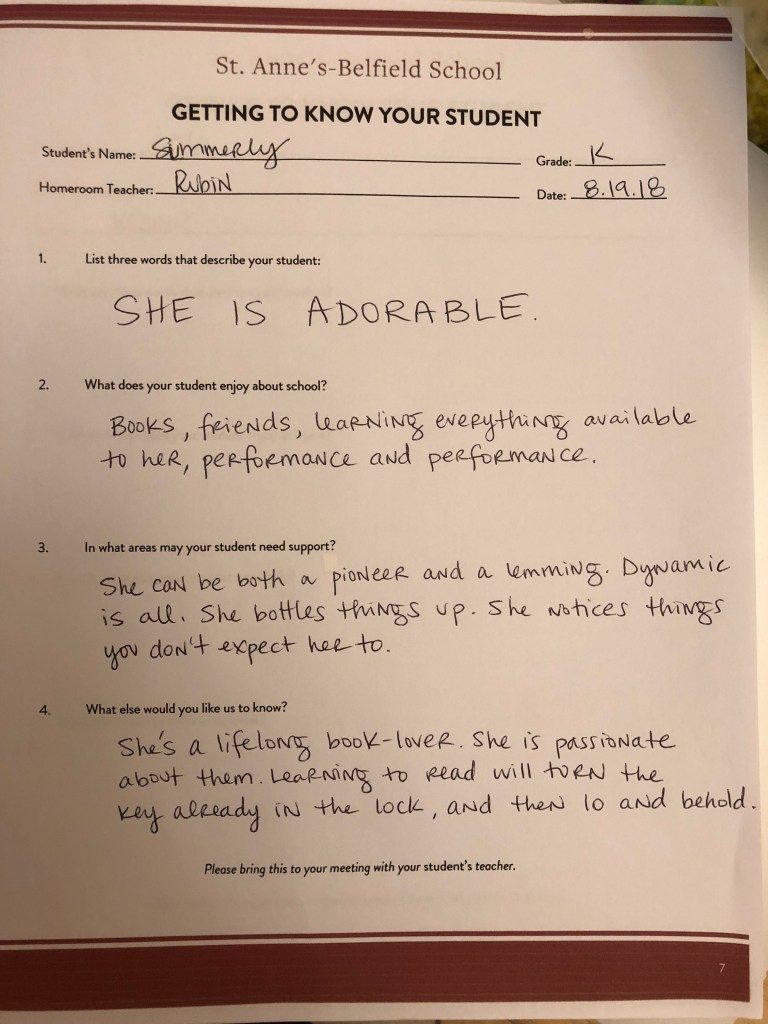 St. Anne's-Belfield School
GETTING TO KNOW YOUR STUDENT
Student's Name: Summerly
Grade: K
Homeroom Teacher: Rubin
Date: 8.19.18
1. List three words that describe your student:
SHE IS ADORABLE.
2. What does your student enjoy about school?
Books, friends, learning everything available
to her, performance and performance.
3. In what areas may your student need support?
She can be both a pioneer and a lemming. Dynamic
is all. She bottles things up. She notices things
you don't expect her to.
4. What else would you like us to know?
She's a lifelong book-lover. She is passionate
about them. Learning to read will turn the
key already in the lock, and then lo and behold.
Please bring this to your meeting with your student's teacher.
7